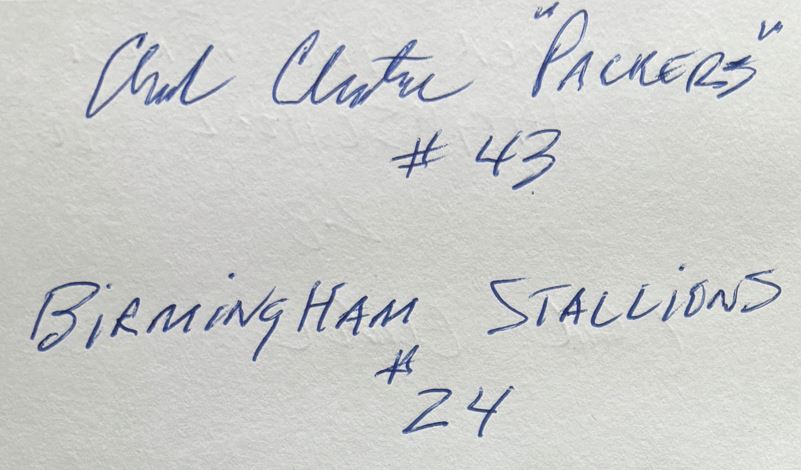 Chuck Clanton "PACKERS"
# 43
BiRMiNGHAM STALLiONS
#
24